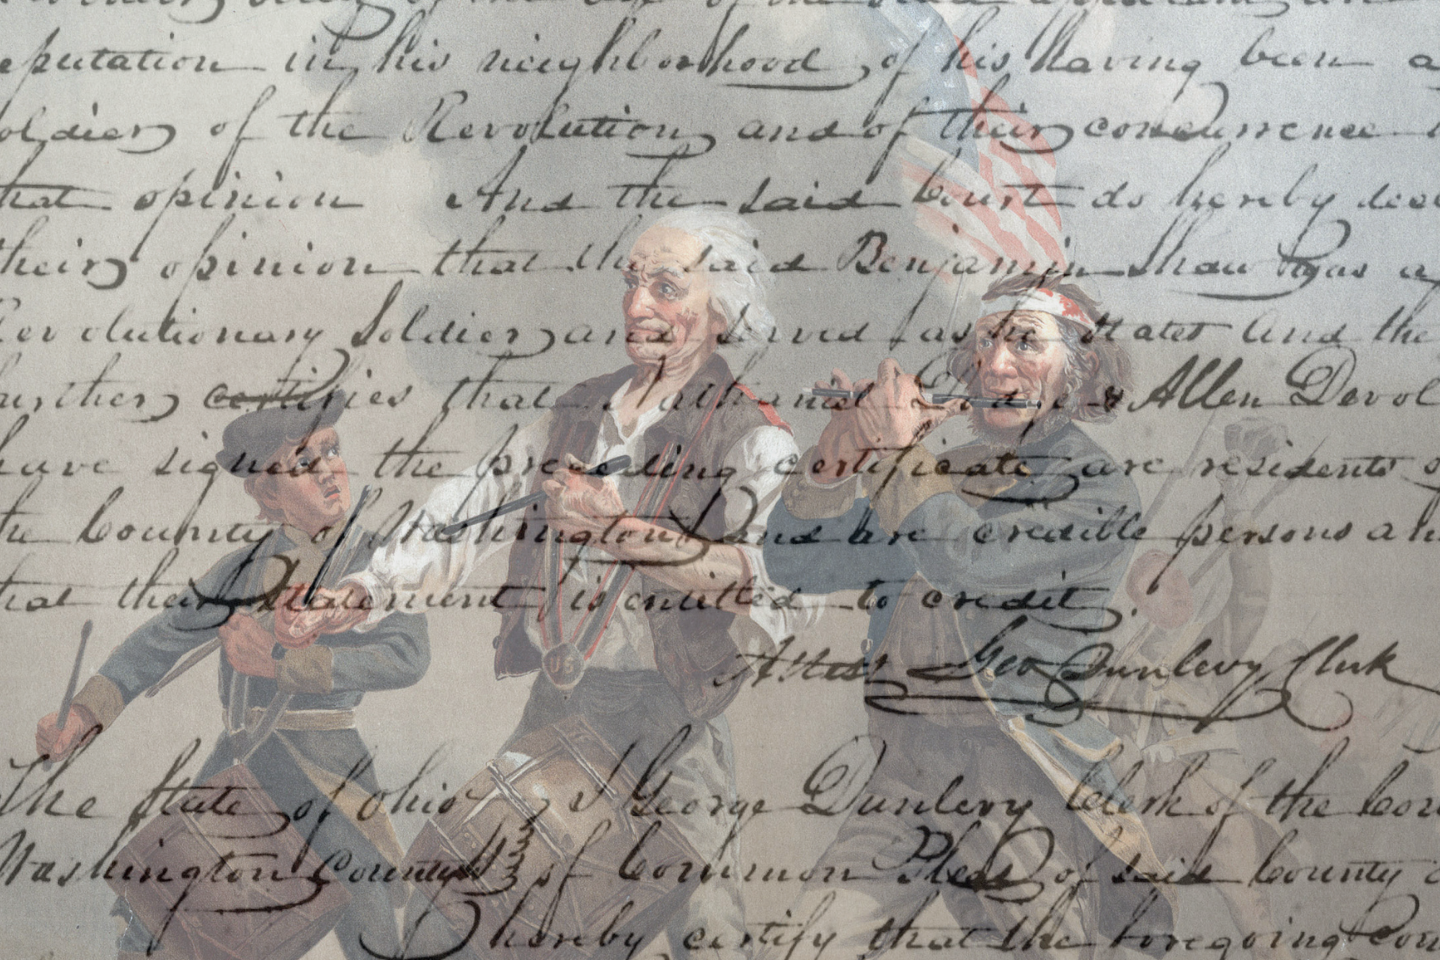 eputation in his neighborhood, of his having been a
oldier of the Revolution, and of their concurrence
hat opinion And the said Court do hereby dec
heir opinion that the said Benjamin Shaw was a
Revolutionary Soldier, and served as he states And the
urther certifies that Nathaniel & Allen Devol
have signed the preceding certificate, are residents o
the County of Washington, and are credible persons a
hat their Statement is entitled to credit.
Attest Geo Dunlevy Clerk
The State of Ohio } I George Dunlevy Clerk of the Cou
Washington County SS } of Common Pleas of said County
hereby certify that the foregoing con
US